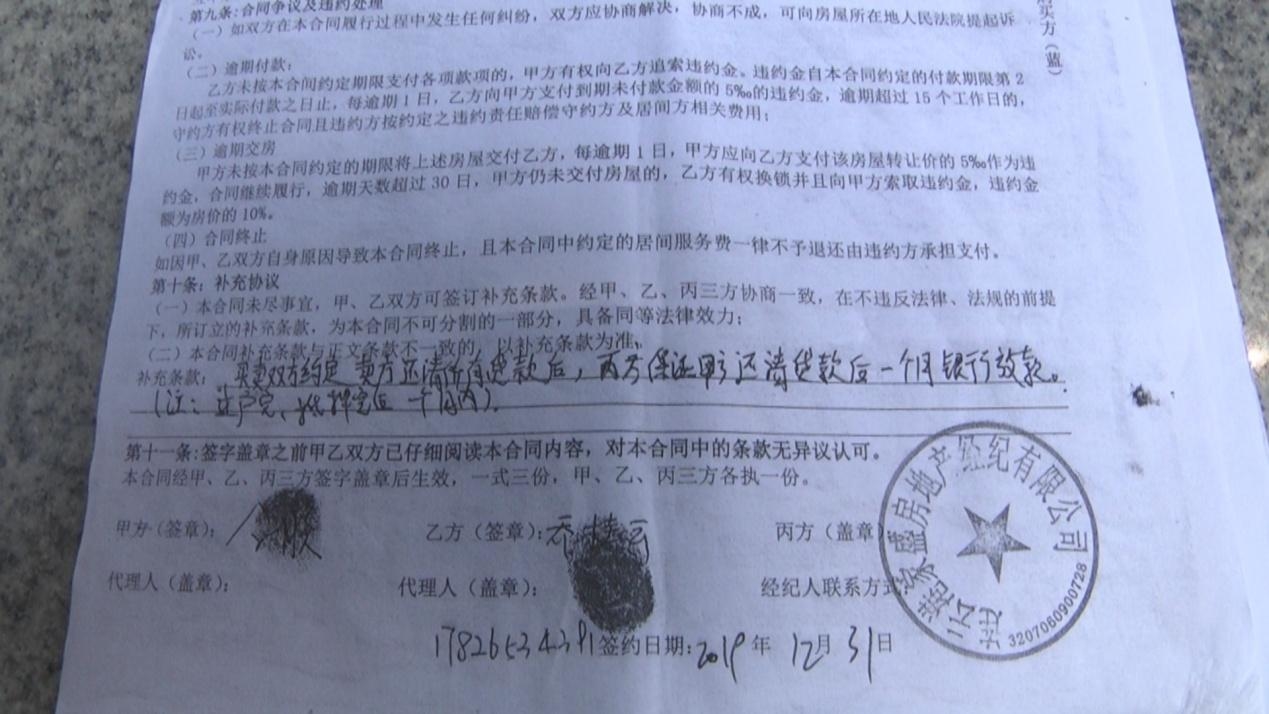 第九条:合同争议及违约处理
（一）如双方在本合同履行过程中发生任何纠纷，双方应协商解决，协商不成，可向房屋所在地人民法院提起诉
讼。
（二）逾期付款：
乙方未按本合同约定期限支付各项款项的，甲方有权向乙方追索违约金。违约金自本合同约定的付款期限第2
日起至实际付款之日止，每逾期1日，乙方向甲方支付到期未付款金额的5‰的违约金，逾期超过15个工作日的，
守约方有权终止合同且违约方按约定之违约责任赔偿守约方及居间方相关费用；
（三）逾期交房
甲方未按本合同约定的期限将上述房屋交付乙方，每逾期1日，甲方应向乙方支付该房屋转让价的5‰作为违
约金，合同继续履行，逾期天数超过30日，甲方仍未交付房屋的，乙方有权换锁并且向甲方索取违约金，违约金
额为房价的10%。
（四）合同终止
如因甲、乙双方自身原因导致本合同终止，且本合同中约定的居间服务费一律不予退还由违约方承担支付。
第十条：补充协议
（一）本合同未尽事宜，甲、乙双方可签订补充条款。经甲、乙、丙三方协商一致，在不违反法律、法规的前提
下，所订立的补充条款，为本合同不可分割的一部分，具备同等法律效力；
（二）本合同补充条款与正文条款不一致的，以补充条款为准。
补充条款：买卖双方约定卖方还清所有贷款后，丙方保证甲方还清贷款后一个月银行放款。
（注：过户完、抵押完后一个月内）.
第十一条:签字盖章之前甲乙双方已仔细阅读本合同内容，对本合同中的条款无异议认可。
本合同经甲、乙、丙三方签字盖章后生效，一式三份，甲、乙、丙三方各执一份。
甲方（签章）： 乙方（签章）： 丙方（盖章）
代理人（盖章）： 代理人（盖章）： 经纪人联系方式：
签约日期：2019年12月31日
连云港家盛房地产经纪有限公司
3207060900728
买方（蓝）